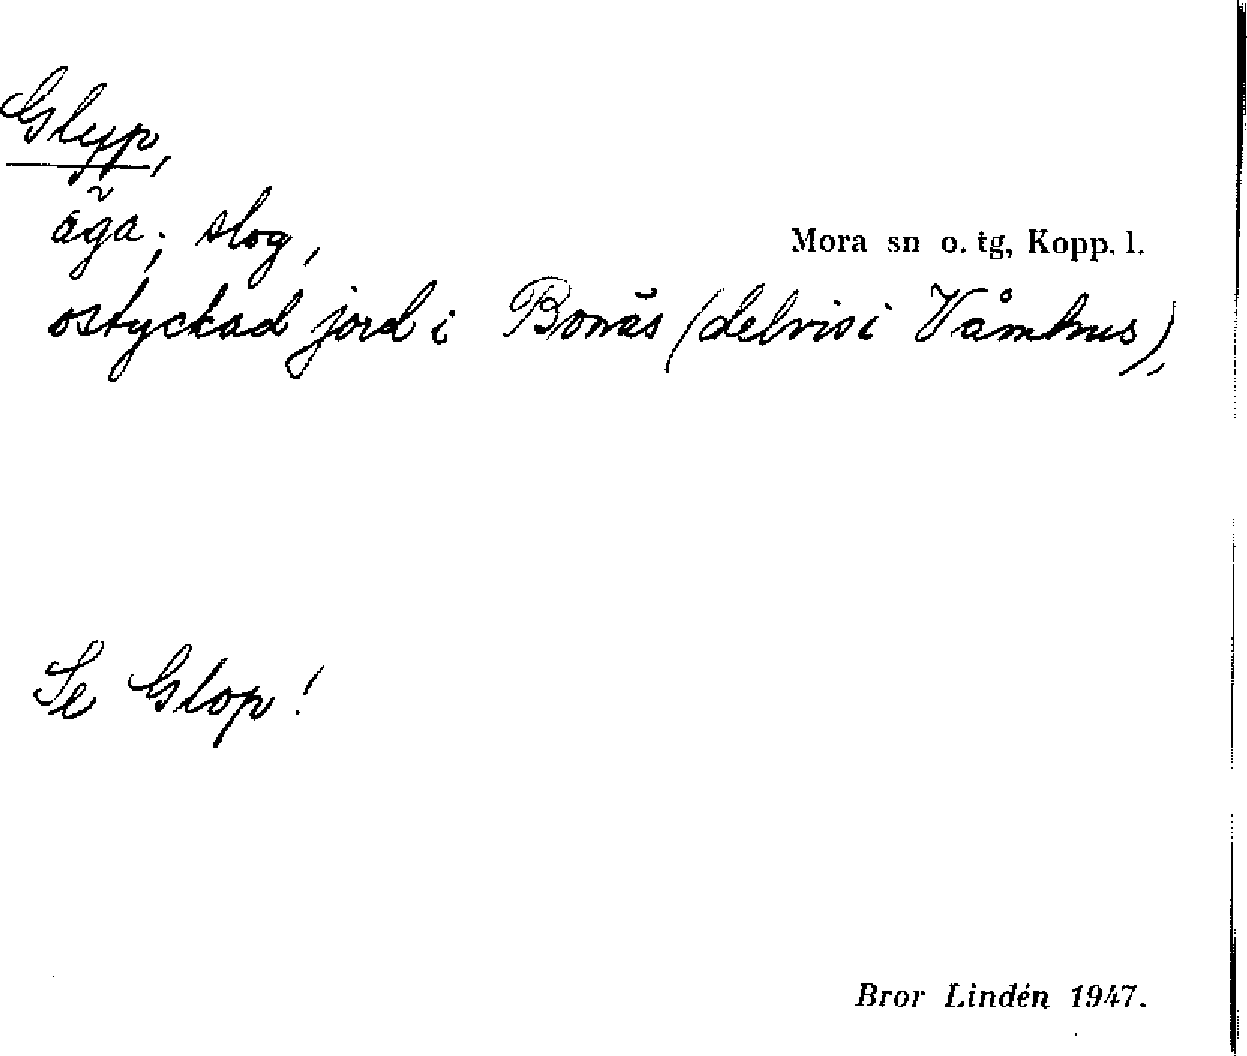 Glyp,
äga; slog,
Mora sn o. tg, Kopp. l.
ostyckad jord i Bonäs (delvis i Våmhus),
Se Glop!
Bror Lindén 1947.